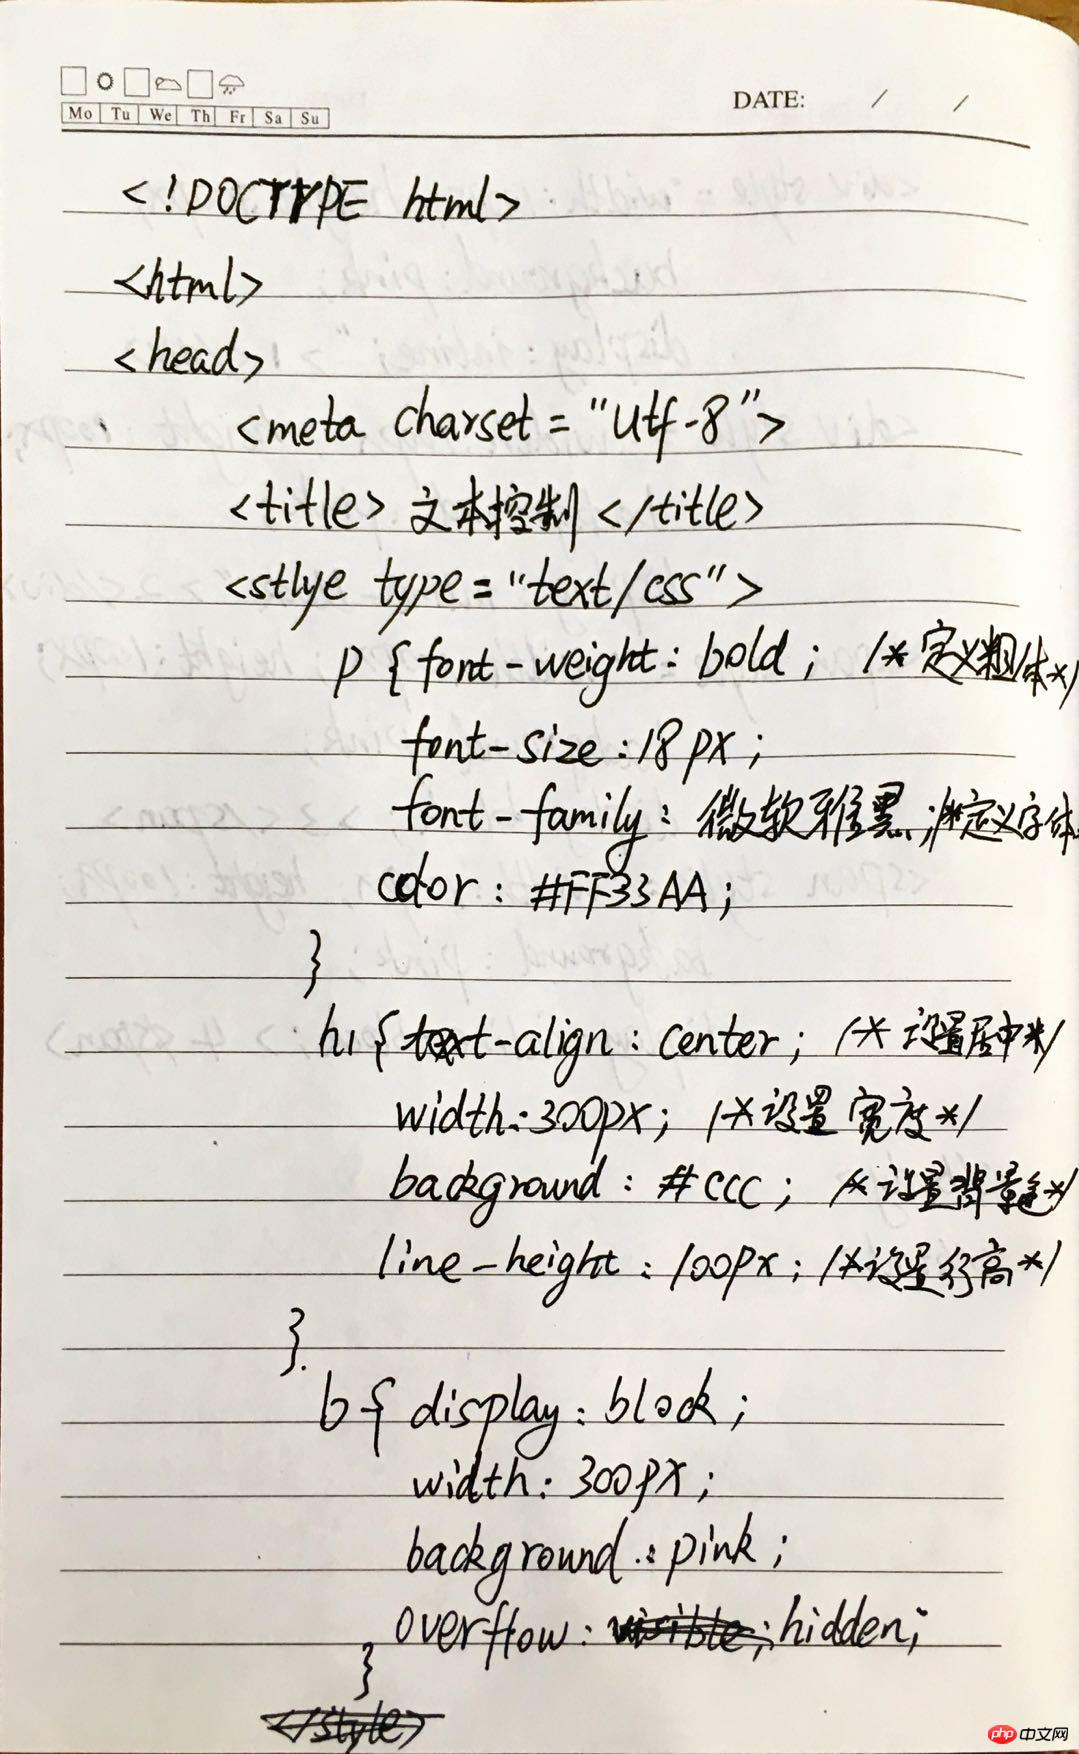 Mo Tu We Th Fr Sa Su
DATE: / /
<!DOCTYPE html>
<html>
<head>
<meta charset="utf-8">
<title>文本控制</title>
<stlye type="text/css">
p{font-weight:bold; /*定义粗体*/
font-size:18px;
font-family:微软雅黑;/*定义字体
color:#FF33AA;
}
h1{text-align:center; /*设置居中*/
width:300px; /*设置宽度*/
background:#ccc; /*设置背景色*/
line-height:100px; /*设置行高*/
}
b{display:block;
width:300px;
background:pink;
overflow:visible;hidden;
}
</style>
php中文网